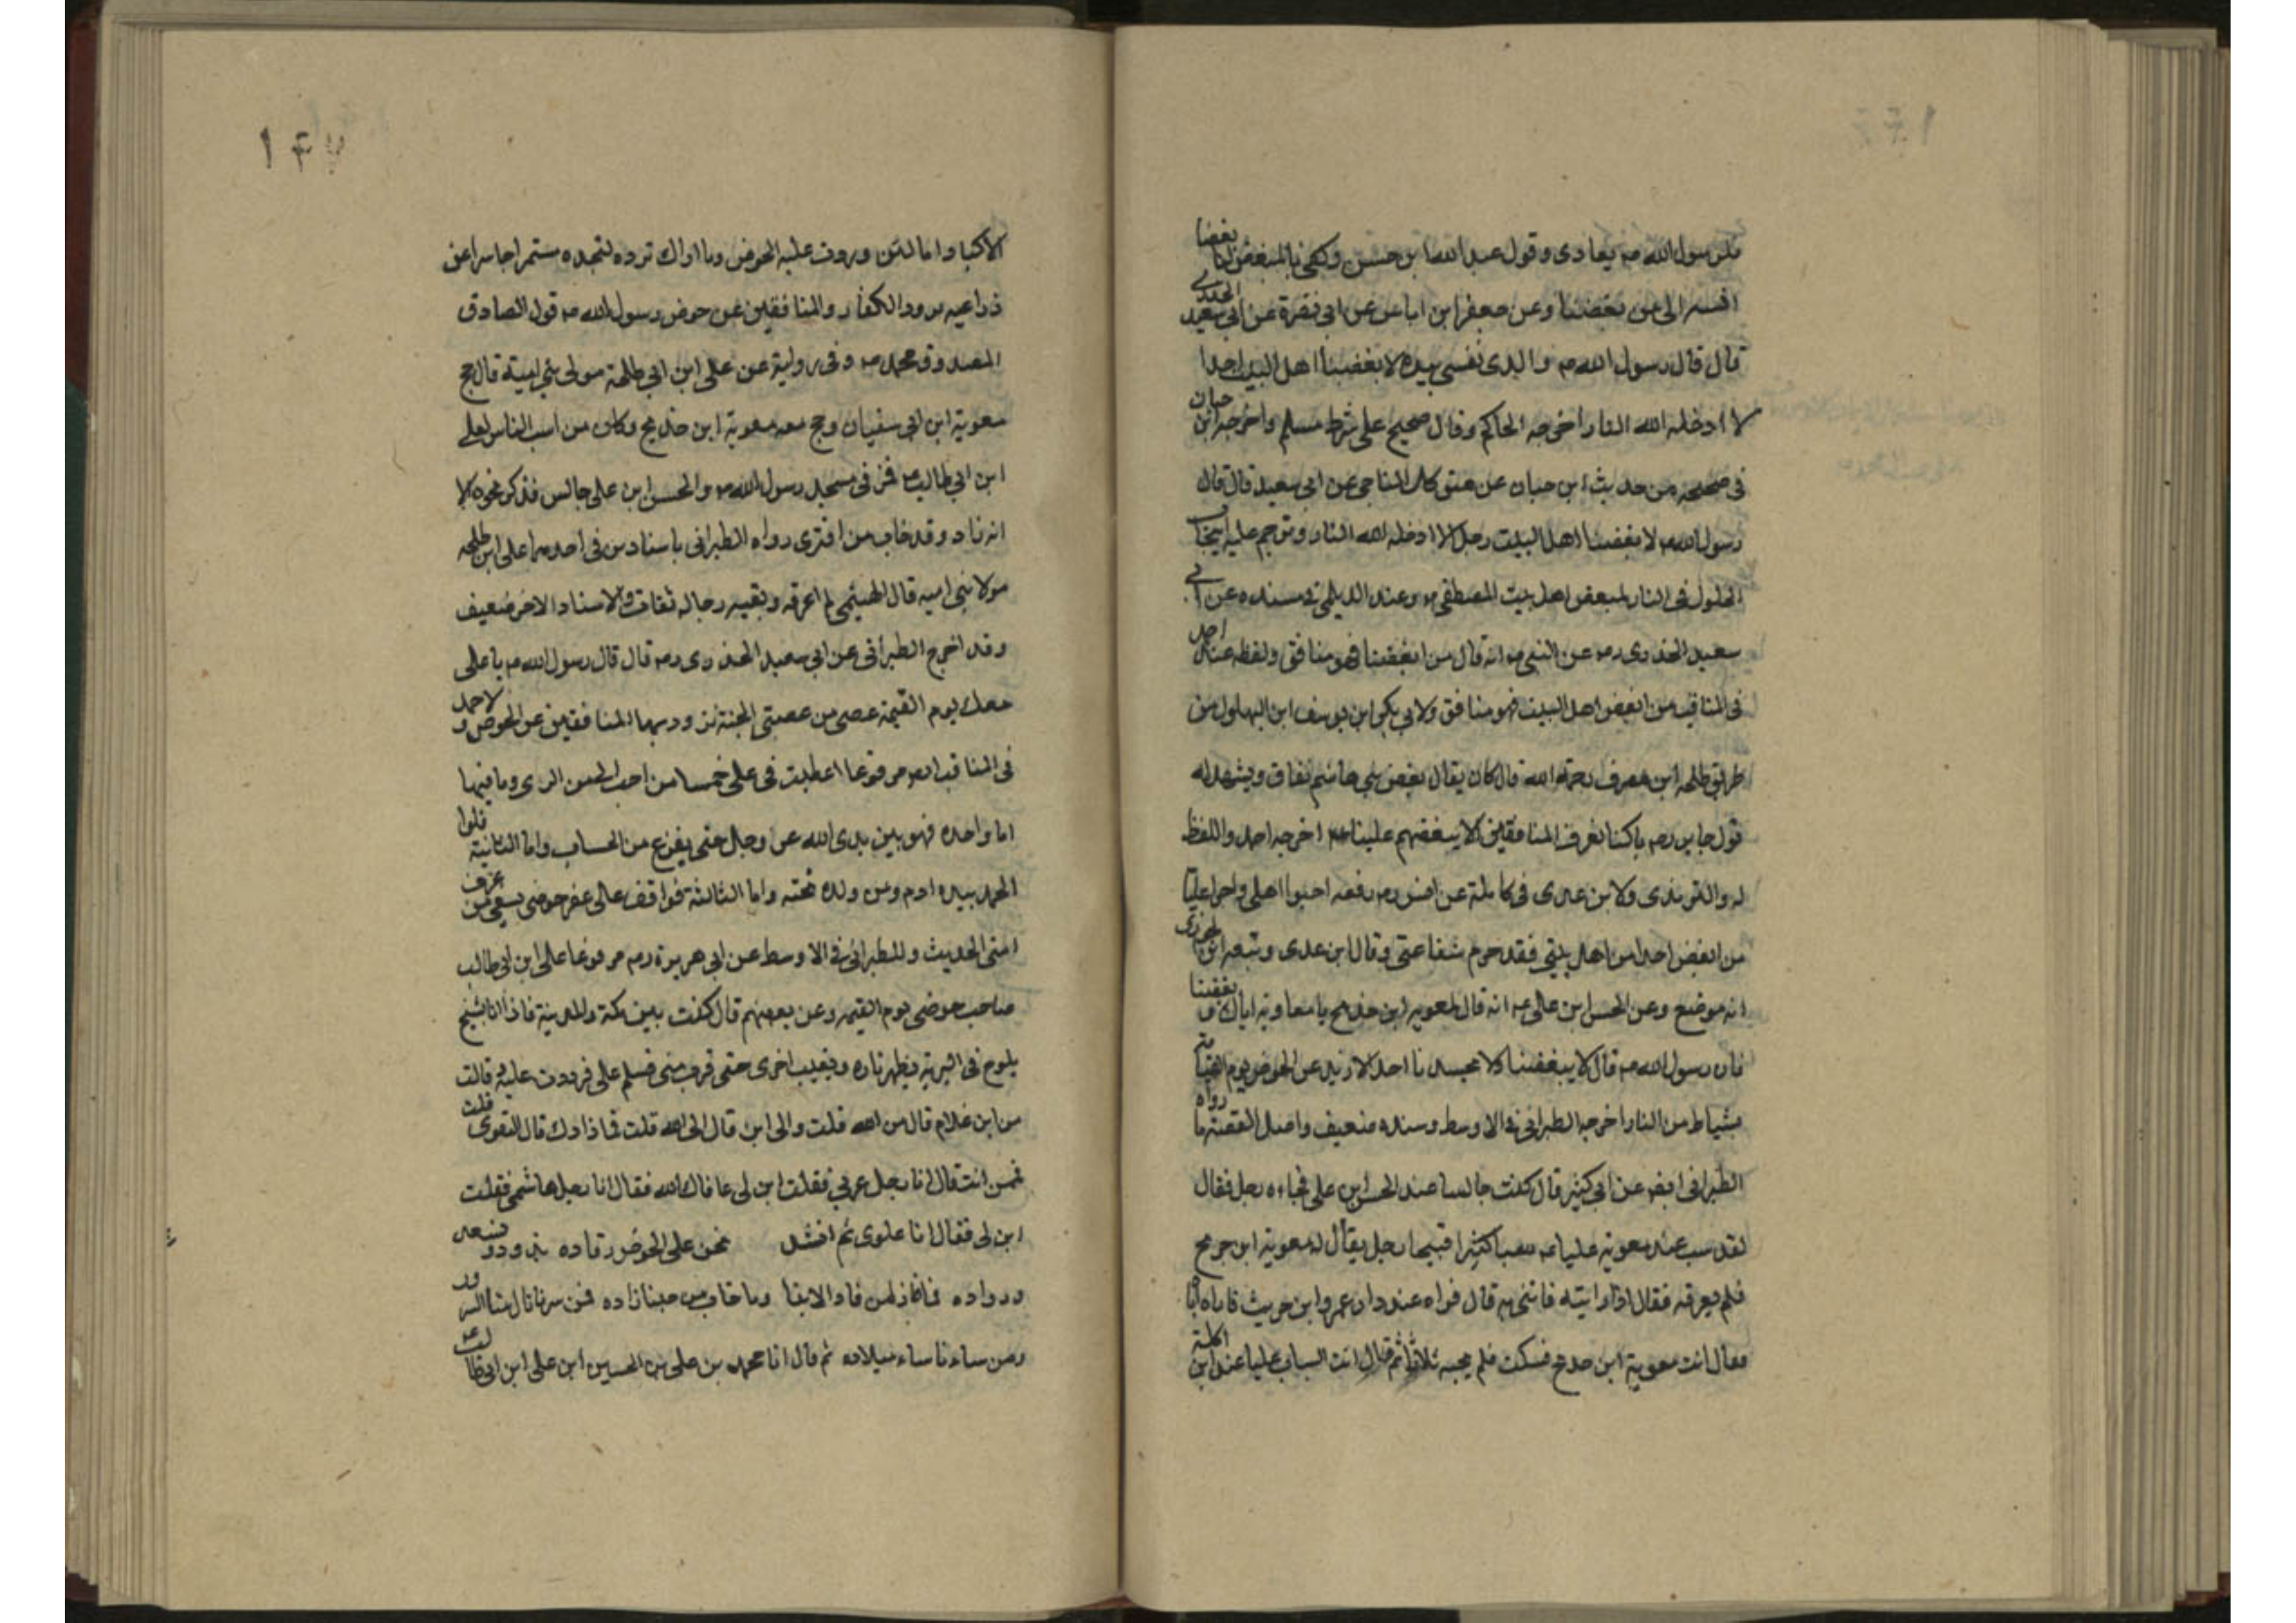 رسول الله ص يعادى وقول عبد الله ابن حسن وكفى بالمبغض لنا بغضا
انسبه الى من بغضنا وعن جعفر ابن اياس عن ابى نضرة عن ابى سعيد الخدرى
قال قال رسول الله ص والذى نفسى بيده لا يبغضنا اهل البيت احدا
لا ادخله الله النار اخرجه الحاكم وقال صحيح على شرط مسلم واخرجه ابن حبان
فى صحيحه من حديث ابن حبان عن المناجى عن ابى سعيد قال قال
رسول الله ص لا يبغضنا اهل البيت رجل الا ادخله الله النار وترجم عليه
الخلول فى النار لمبغض اهل بيت المصطفى ص وعند الديلمى فى مسنده عن ابى
سعيد الخدرى رم عن النبى ص انه قال من ابغضنا فهو منافق ولفظه عند احد
فى المناقب من ابغض اهل البيت فهو منافق ولابى بكر ابن يوسف ابن البهلول من
طريق طلحه ابن مصرف رحمة الله قال كان يقال بغض بنى هاشم نفاق ويشهد له
قول جابر رم ما كنا نعرف المنافقين الا ببغضهم عليا عم اخرجه احد واللفظ
له والترمذى ولابن عدى فى كامله عن انس رم رفعه احبوا اهلى واحبوا عليا
من ابغض احدا من اهل بيتى فقد حرم شفاعتى وقال ابن عدى وتبعه ابن الجوزى
انه موضع وعن الحسن ابن على عم انه قال لمعويه ابن خديج يا معاويه اياك و بغضنا
فان رسول الله ص قال لا يبغضنا ولا يحسدنا احد الا زيد عن الحوض يوم القيمة
بشياط من النار اخرجه الطبرانى فى الاوسط وسنده ضعيف واصل القصة ما رواه
الطبرانى ايضا عن ابى كثير قال كنت جالسا عند الحسن ابن على فجاءه رجل فقال
لقد سب عند معوية عليا عم سبا كثيرا قبيحا رجل يقال له معوية ابن جريح
فلم يعرفه فقال اذا رايته فاتنى به قال فراه عند دار عمرو ابن حريث فاراه اياه
فقال انت معوية ابن خديج فسكت فلم يجبه ثلاثا ثم قال انت السباب عليا عند ابن اكلة
١٤٧
الاكبا د اما لئن وردت عليه الحوض وما اراك ترده لتجده مستمرا حاسرا عن
ذراعيه يرود الكفار والمنافقين عن حوض رسول الله ص قول الصادق
المصدوق محمد ص وفى رواية عن على ابن ابى طلحة مولى بنى امية قال حج
معوية ابن ابى سفيان وحج معه معوية ابن خديج وكان من اسب الناس لعلى
ابن ابى طالب عم فمر فى مسجد رسول الله ص والحسن ابن على جالس فذكر نحوه الا
انه زاد وقد خاب من افترى رواه الطبرانى باسنادين فى احدهما على ابن طلحه
مولا بنى اميه قال الهيثمى لم اعرفه وبقيه رجاله ثقات والاسناد الاخر ضعيف
وقد اخرج الطبرانى عن ابى سعيد الخدرى رم قال قال رسول الله ص يا على
معك يوم القيمة عصى من عصى الجنة تزود بها المنافقين عن الحوض و لاحمد
فى المناقب ايض مرفوعا اعطيت فى على خمسا من احب وما فيها
اما واحده فهو بين يدى الله عز وجل حتى يفرغ من الحساب واما الثانية فلوا
الحمد بيده ادم ومن ولده تحته واما الثالثة فواقف على عقر حوضى يسقى من عرف
امتى الحديث وللطبرانى فى الاوسط عن ابى هريرة رم مرفوعا على ابن ابى طالب
صاحب حوضى يوم القيمه وعن بعضهم قال كنت بين مكة والمدينة فاذا انا بشيخ
يلوح فى البرية فيظهر تاره ويغيب اخرى حتى قرب منى فسلم على فرددت عليه وقالت
من اين غلام قال من الله قلت والى اين قال الى الله قلت فما زادك قال التقوى قلت
فمن انت قال انا رجل عربى فقلت ابن لى عافاك الله فقال انا رجل هاشمى فقلت
ابن لى فقال انا علوى ثم انشد نحن على الحوض رقاده نزود و تسعد
ورواده فما فاز من فاز الا بنا وما خاب من حبنا زاده فمن سرنا نال منا السرور
ومن ساءنا ساء ميلاده ثم قال انا محمد بن على بن الحسين ابن على ابن ابى طالب عم